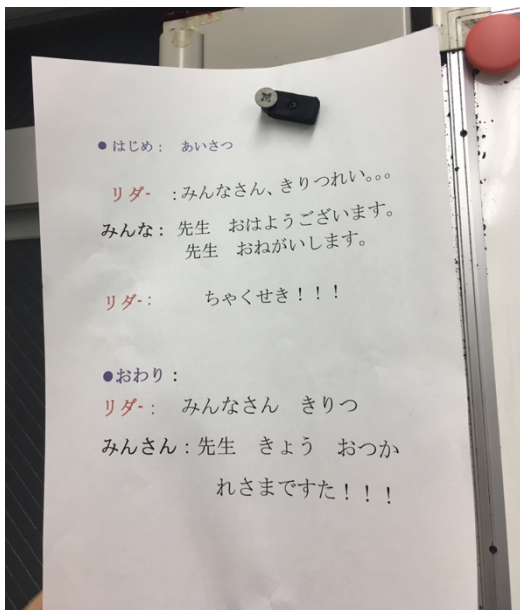 ●はじめ： あいさつ
リダ- ：みんなさん、きりつれい。。。
みんな：先生 おはようございます。
先生 おねがいします。
リダ-： ちゃくせき！！！
●おわり：
リダ-： みんなさん きりつ
みんさん：先生 きょう おつか
れさまですた！！！